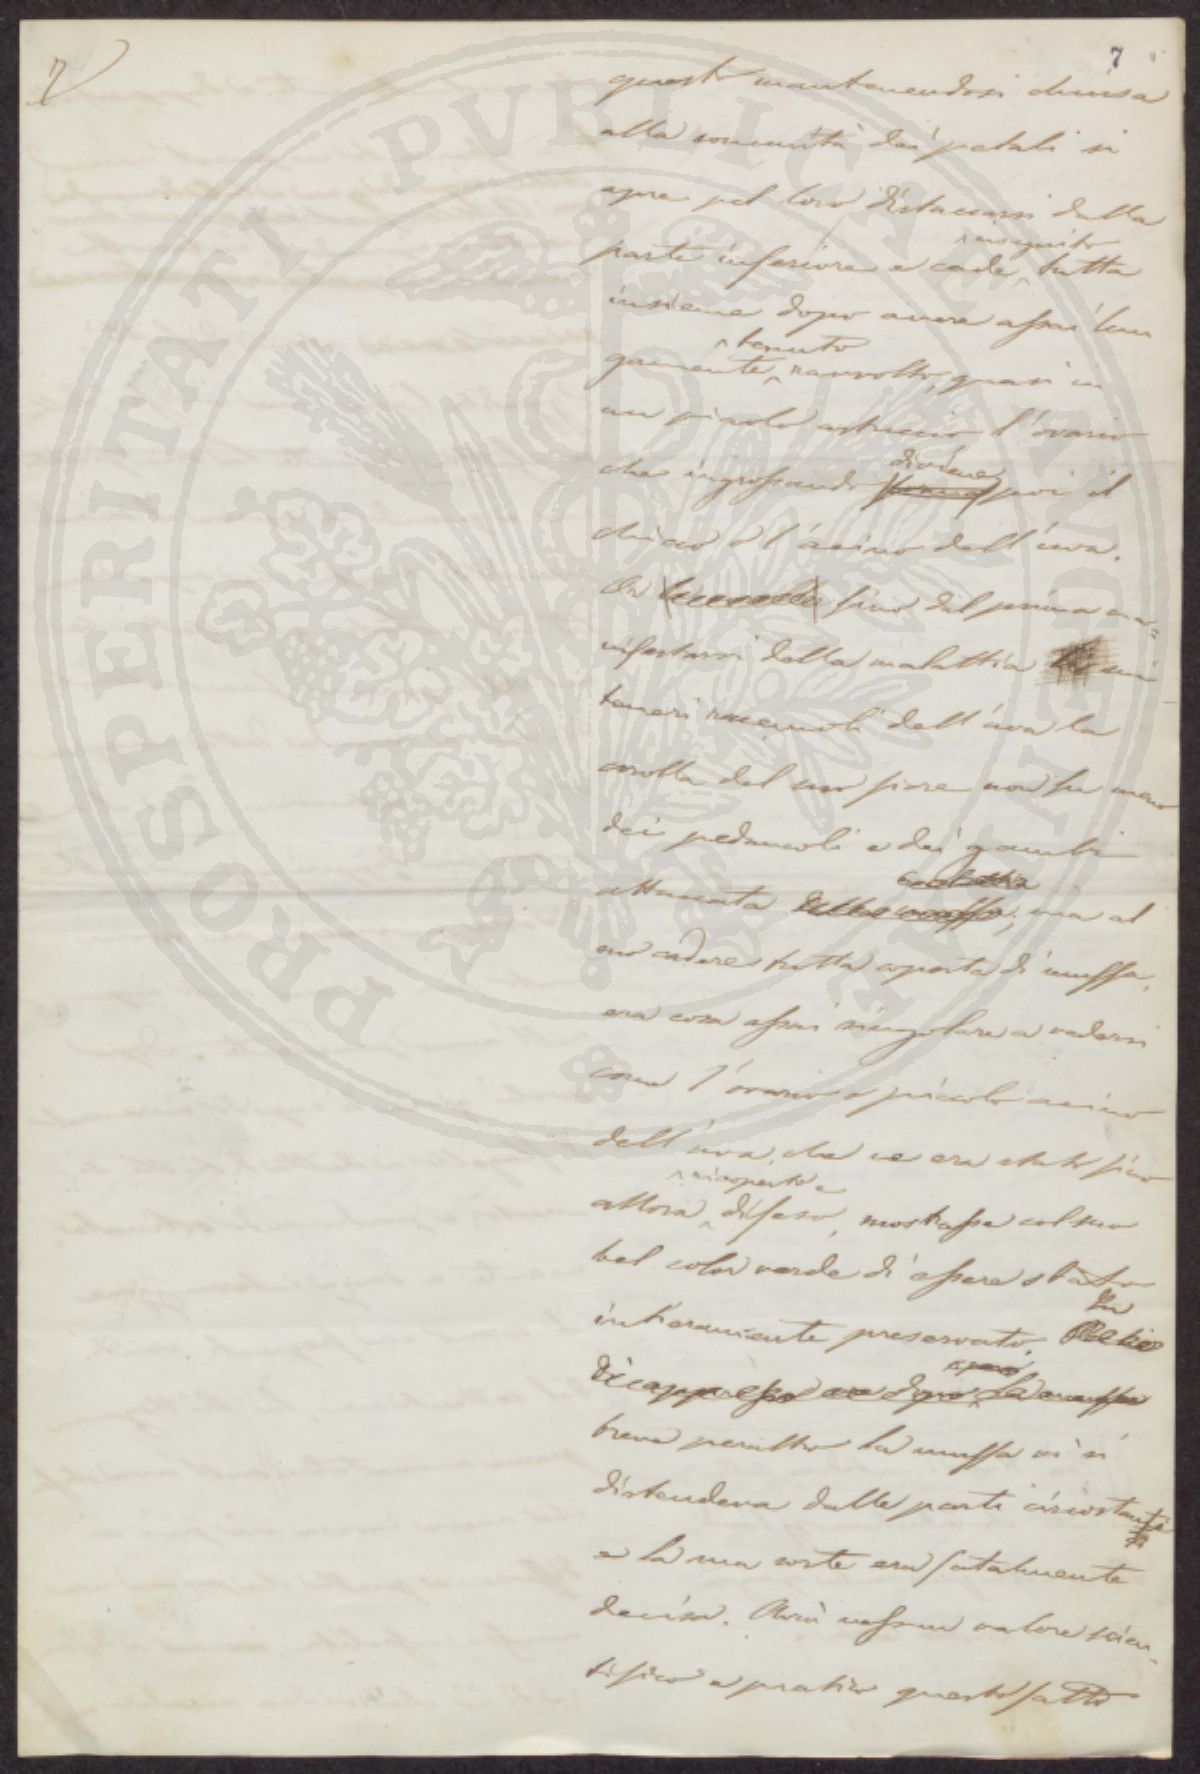 7
7
questo mantenendosi chiusa
alla sommità dei petali si
apre pel loro distaccarsi dalla
parte inferiore e cade ^ in seguito tutta
insieme dopo avere assai lun
gamente ^ tenuto ravvolto, quasi in
un piccolo astuccio l'ovario
che ingrossando diviene poi il
chicco o l'acino dell'uva.
Or fino dal primo ma=
nifestarsi della malattia sui
teneri racemoli dell'uva la
corolla del suo fiore non fu meno
dei peduncoli e dei gambi
attaccata della muffa; ma al
suo cadere tutta coperta di muffa,
era cosa assai singolare a vedersi
come l'ovario o piccolo acino
dell'uva, che ne era stato fino
allora ^ ricoperto e difeso, mostrasse col suo
bel color verde di essere stato
intieramente preservato. In
di appresso dopo la muffa
breve peraltro la muffa vi si
distendeva dalle parti circostanti
e la sua sorte era fatalmente
decisa. Avrà nessun valore scien=
tifico e pratico questo fatto
PROSPERITATI PUBLICAE AUGENDAE